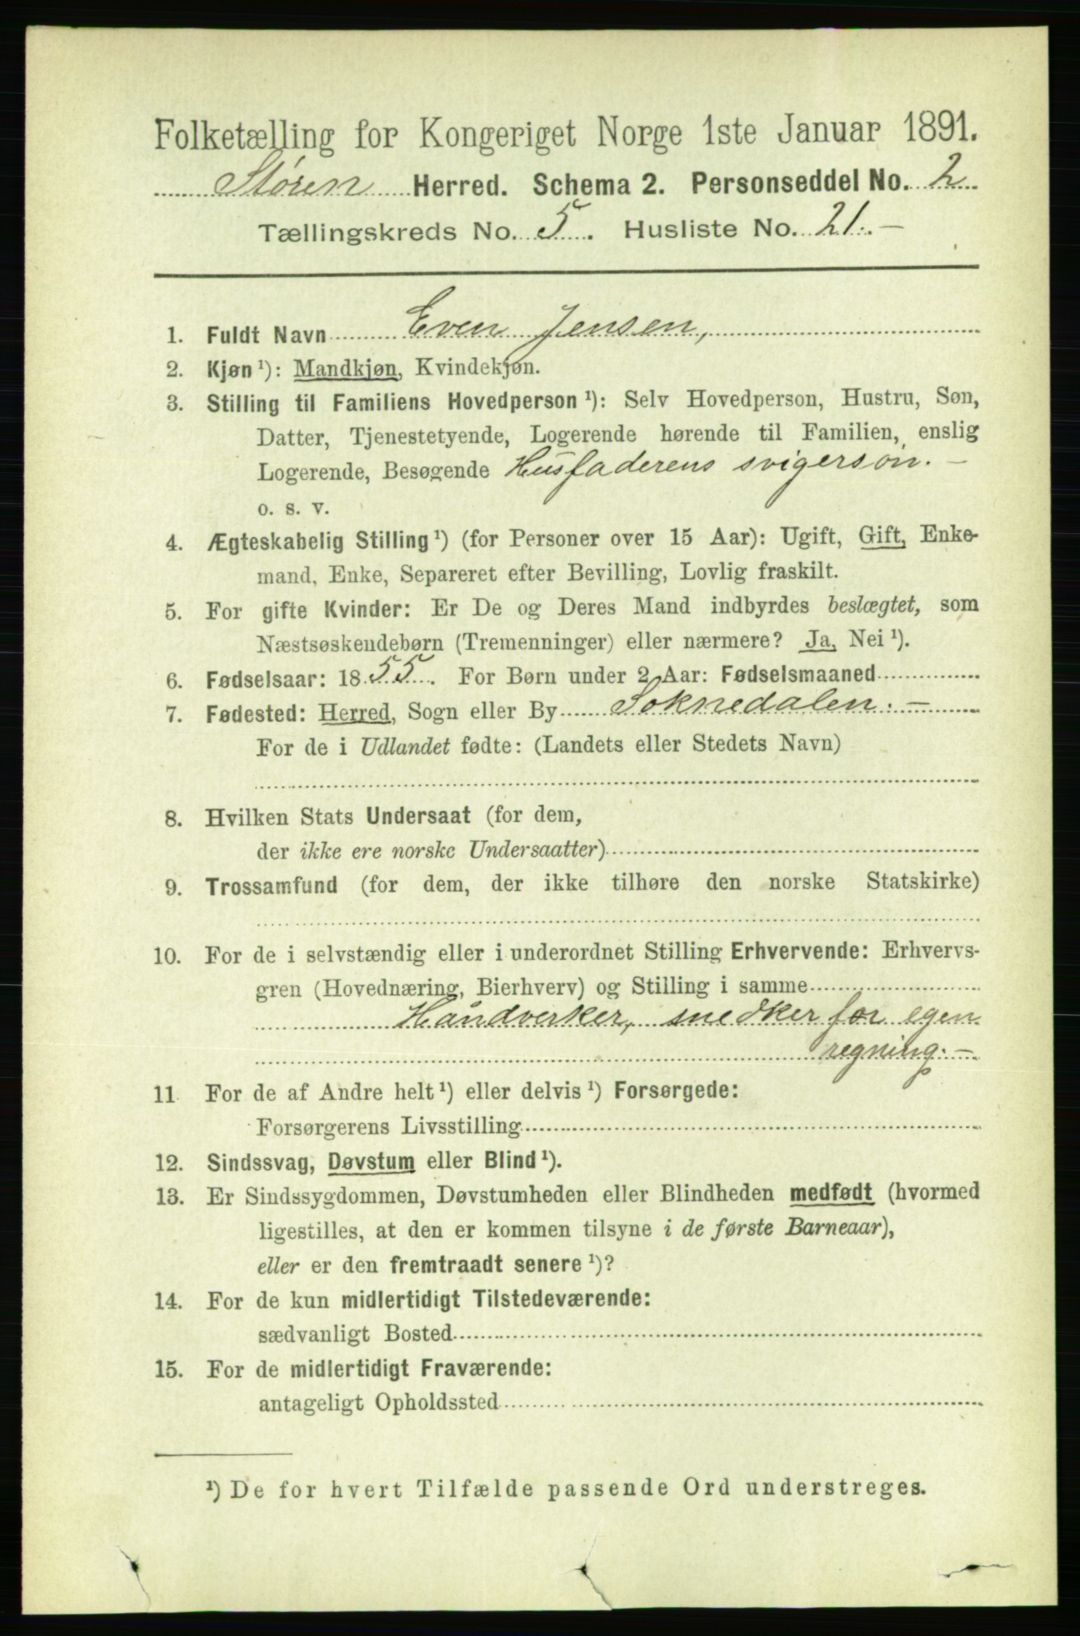 Folketælling for Kongeriget Norge 1ste Januar 1891.
Støren Herred. Schema 2. Personseddel No. 2
Tællingskreds No. 5. Husliste No. 21.—
1. Fuldt Navn Even Jensen,
2. Kjøn ¹): Mandkjøn, Kvindekjøn.
3. Stilling til Familiens Hovedperson ¹): Selv Hovedperson, Hustru, Søn,
Datter, Tjenestetyende, Logerende hørende til Familien, enslig
Logerende, Besøgende Husfaderens svigersøn. —
o. s. v.
4. Ægteskabelig Stilling ¹) (for Personer over 15 Aar): Ugift, Gift, Enke-
mand, Enke, Separeret efter Bevilling, Lovlig fraskilt.
5. For gifte Kvinder: Er De og Deres Mand indbyrdes beslægtet, som
Næstsøskendebørn (Tremenninger) eller nærmere? Ja, Nei ¹).
6. Fødselsaar: 1855. For Børn under 2 Aar: Fødselsmaaned
7. Fødested: Herred, Sogn eller By Soknedalen. —
For de i Udlandet fødte: (Landets eller Stedets Navn)
8. Hvilken Stats Undersaat (for dem,
der ikke ere norske Undersaatter)
9. Trossamfund (for dem, der ikke tilhøre den norske Statskirke)
10. For de i selvstændig eller i underordnet Stilling Erhvervende: Erhvervs-
gren (Hovednæring, Bierhverv) og Stilling i samme
Håndverker, snedker for egen
regning. —
11 For de af Andre helt ¹) eller delvis ¹) Forsørgede:
Forsørgerens Livsstilling
12. Sindssvag, Døvstum eller Blind ¹).
13. Er Sindssygdommen, Døvstumheden eller Blindheden medfødt (hvormed
ligestilles, at den er kommen tilsyne i de første Barneaar),
eller er den fremtraadt senere ¹)?
14. For de kun midlertidigt Tilstedeværende:
sædvanligt Bosted
15. For de midlertidigt Fraværende:
antageligt Opholdssted
¹) De for hvert Tilfælde passende Ord understreges.